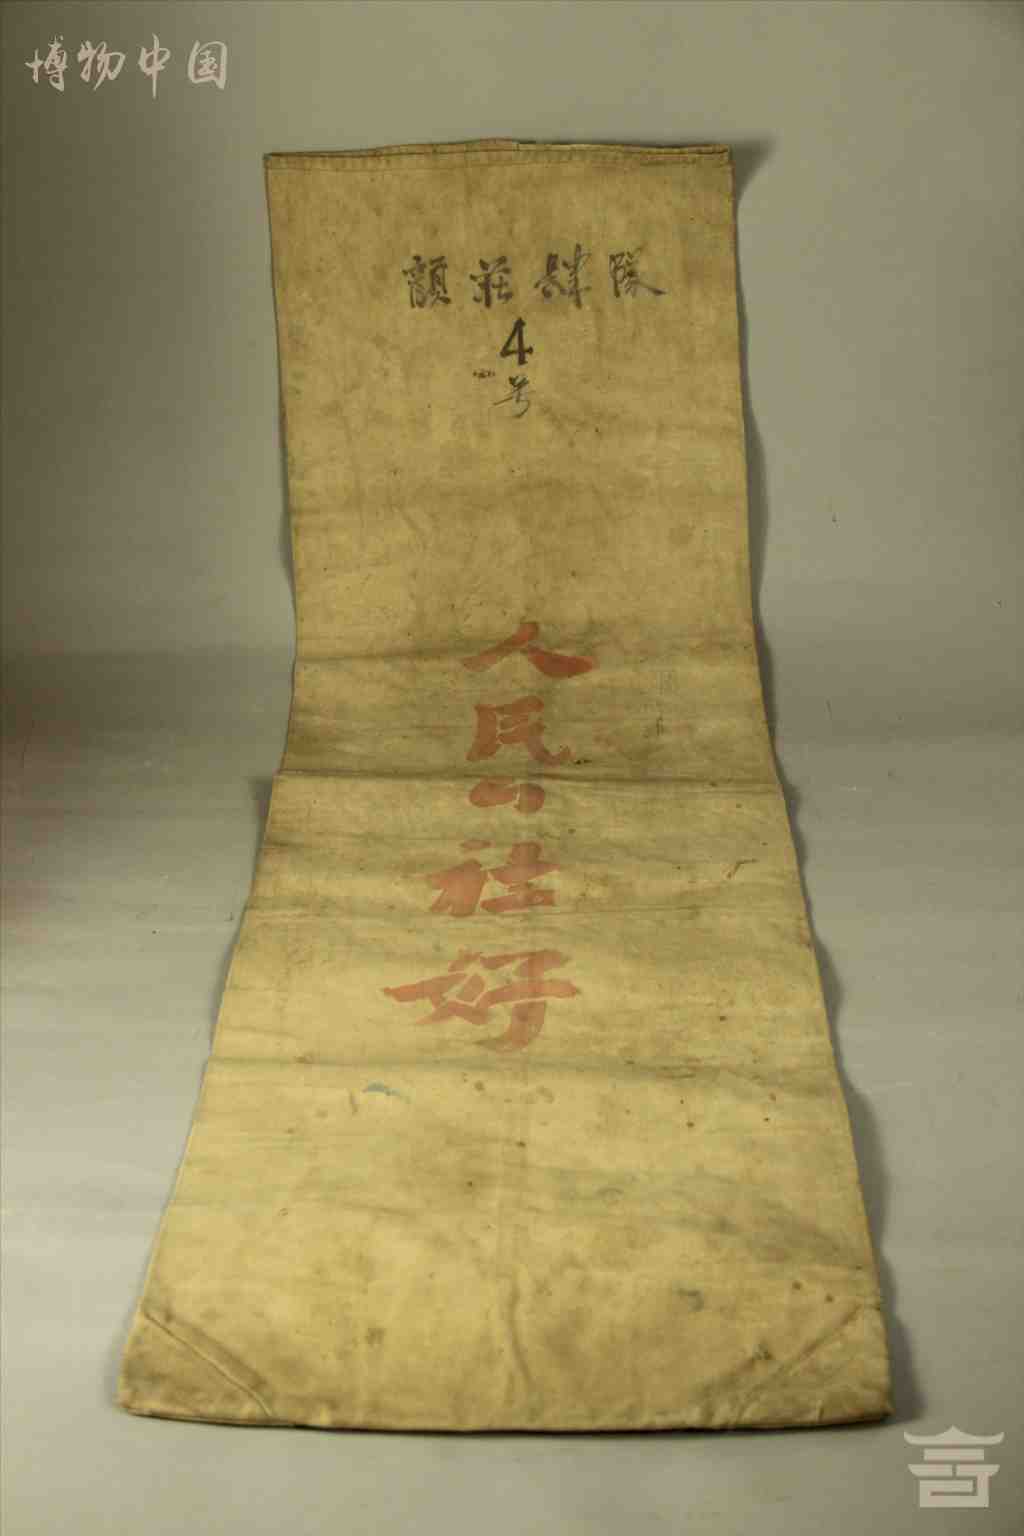 博物中国
顏莊肆隊
4
号
人
民
公
社
好